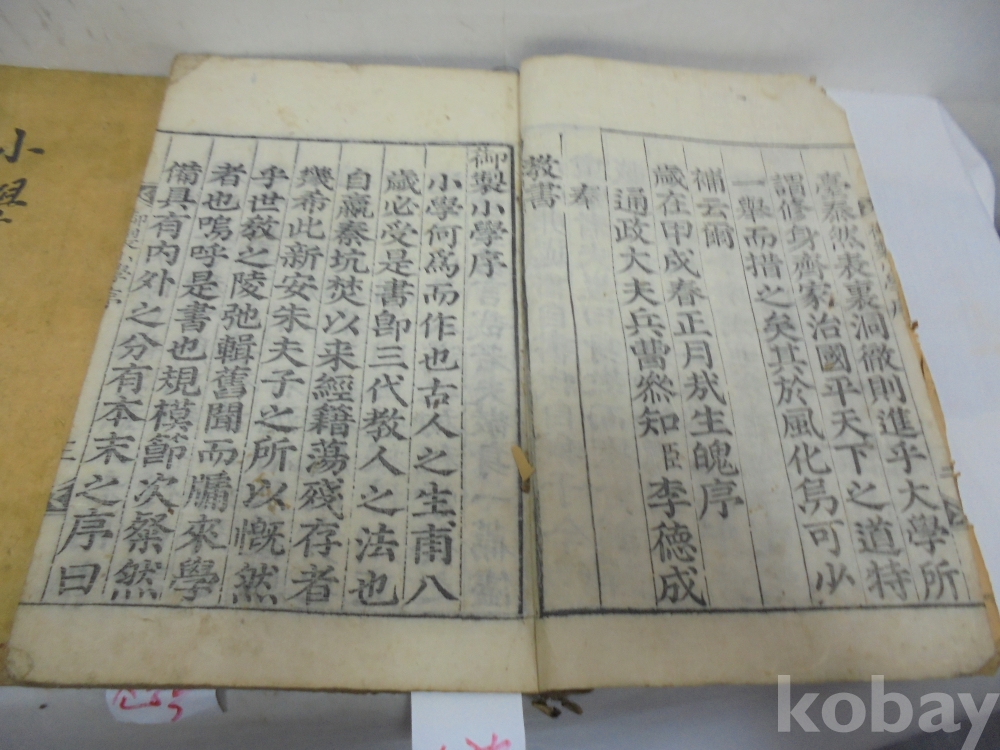 臺泰然表裏洞徹則進乎大學所
謂修身齊家治國平天下之道特
一舉而措之矣其於風化烏可少
補云爾
歲在甲戌春正月㦲生魄序
通政大夫兵曹參知臣李德成
奉
教書
御製小學序
小學何爲而作也古人之生甫八
歲必受是書卽三代教人之法也
自嬴秦坑焚以來經籍蕩殘存者
幾希此新安朱夫子之所以慨然
乎世教之陵弛輯舊聞而牖來學
者也嗚呼是書也規模節次粲然
備具有內外之分有本末之序曰
御製小學序
小學
kobay